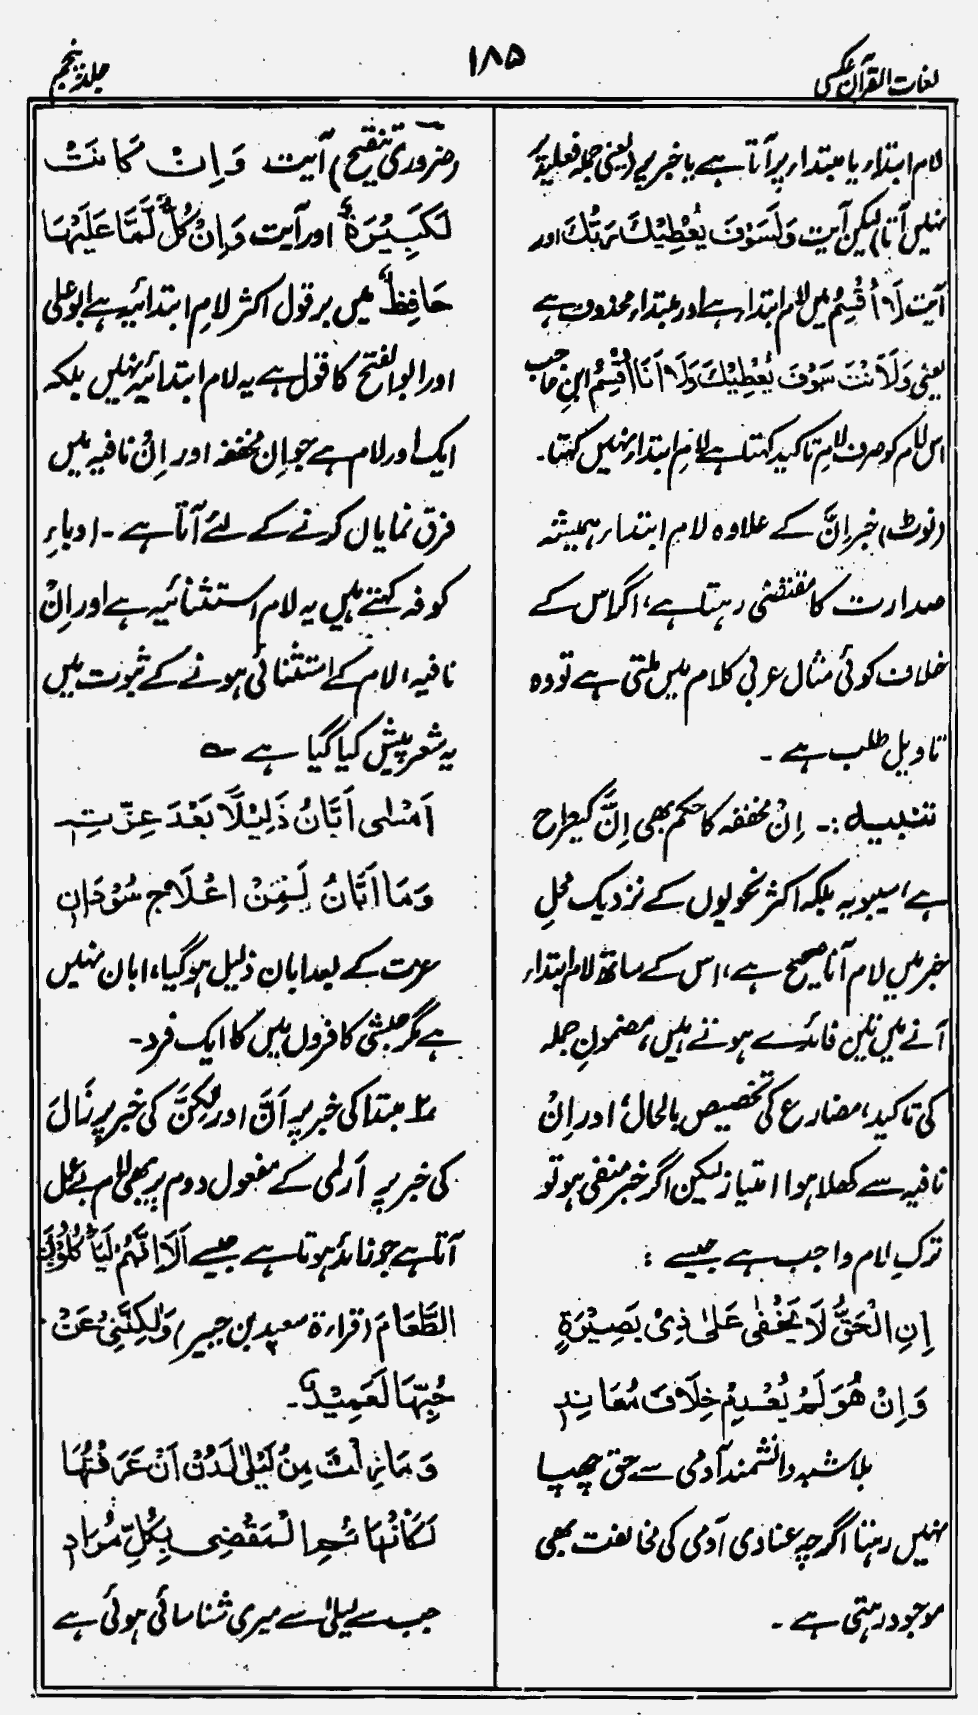 لغات القرآن عکسی
۱۸۵
جلد پنجم
لام ابتداء یا مبتداء پر آتا ہے یا خبر پر (یعنی جملہ فعلیہ پر
نہیں آتا) لیکن آیت وَلَسَوْفَ یُعْطِیْكَ رَبُّكَ اور
آیت لَاُ اُقْسِمُ میں لام ابتداء ہے اور مبتداء محذوف ہے
یعنی وَلَاَنْتَ سَوْفَ یُعْطِیْكَ وَلَاَنَا اُقْسِمُ ابن حاجب
اس لام کو صرف لامِ تاکید کہتا ہے لامِ ابتداء نہیں کہتا۔
(نوٹ) خبر اِنَّ کے علاوہ لامِ ابتداء ہمیشہ
صدارت کا مقتضی رہتا ہے، اگر اس کے
خلاف کوئی مثال عربی کلام میں ملتی ہے تو وہ
تاویل طلب ہے ۔
تنبیہ :۔ اِنْ مخففہ کا حکم بھی اِنَّ کیطرح
ہے، سیبویہ بلکہ اکثر نحویوں کے نزدیک محلِ
خبر میں لام آنا صحیح ہے، اس کے ساتھ لامِ ابتداء
آنے میں تین فائدے ہوتے ہیں، مضمونِ جملہ
کی تاکید، مضارع کی تخصیص بالحال، اور اِنْ
نافیہ سے کھلا ہوا امتیاز لیکن اگر خبر منفی ہو تو
ترکِ لام واجب ہے جیسے :
اِنِ الْحَقُّ لَا یَخْفٰی عَلٰی ذِیْ بَصِیْرَةٍ
وَاِنْ هُوَ لَمْ یُعْدِمْ خِلَافَ مُعَانِدِ
بلا شبہ دانشمند آدمی سے حق چھپا
نہیں رہتا اگرچہ عنادی آدمی کی مخالفت بھی
موجود رہتی ہے ۔
(ضروری تنقیح) آیت وَاِنْ کَانَتْ
لَکَبِیْرَةً اور آیت وَاِنْ کُلٌّ لَّمَّا عَلَیْهَا
حَافِظٌ میں بر قول اکثر لامِ ابتدائیہ ہے ابو علی
اور ابو الفتح کا قول ہے یہ لام ابتدائیہ نہیں بلکہ
ایک اور لام ہے جو اِن مخففہ اور اِنْ نافیہ میں
فرق نمایاں کرنے کے لئے آتا ہے ۔ ادباءِ
کوفہ کہتے ہیں یہ لام استثنائیہ ہے اور اِنْ
نافیہ، لام کے استثنائی ہونے کے ثبوت میں
یہ شعر پیش کیا گیا ہے ؎
اَمْسٰی اَبَّانُ ذَلِیْلًا بَعْدَ عِزَّتِهٖ
وَمَا اَبَّانُ لَمِنْ اعْلَاجِ سُوْدَانِ
عزت کے بعد ابان ذلیل ہو گیا، ابان نہیں
ہے مگر حبشی کافروں میں کا ایک فرد۔
۲؎ مبتدا کی خبر پر اَنَّ اور لٰکِنَّ کی خبر پر زَالَ
کی خبر پر اَرٰی کے مفعول دوم پر بھی لام بے عمل
آتا ہے جو زائد ہوتا ہے جیسے اَلَا اِنَّهُمْ لَیَاْکُلُوْنَ
الطَّعَامَ (قراءة سعید بن جبیر) وَلٰکِنَّنِیْ عَنْ
حُبِّهَا لَعَمِیْدُ۔
وَمَا زِلْتُ مِنْ لَیْلٰی لَدُنْ اَنْ عَرَفْتُهَا
لَکَالْهَائِمِ الْمَقْضِی بِکُلِّ مُرَادِ
جب سے لیلیٰ سے میری شناسائی ہوئی ہے